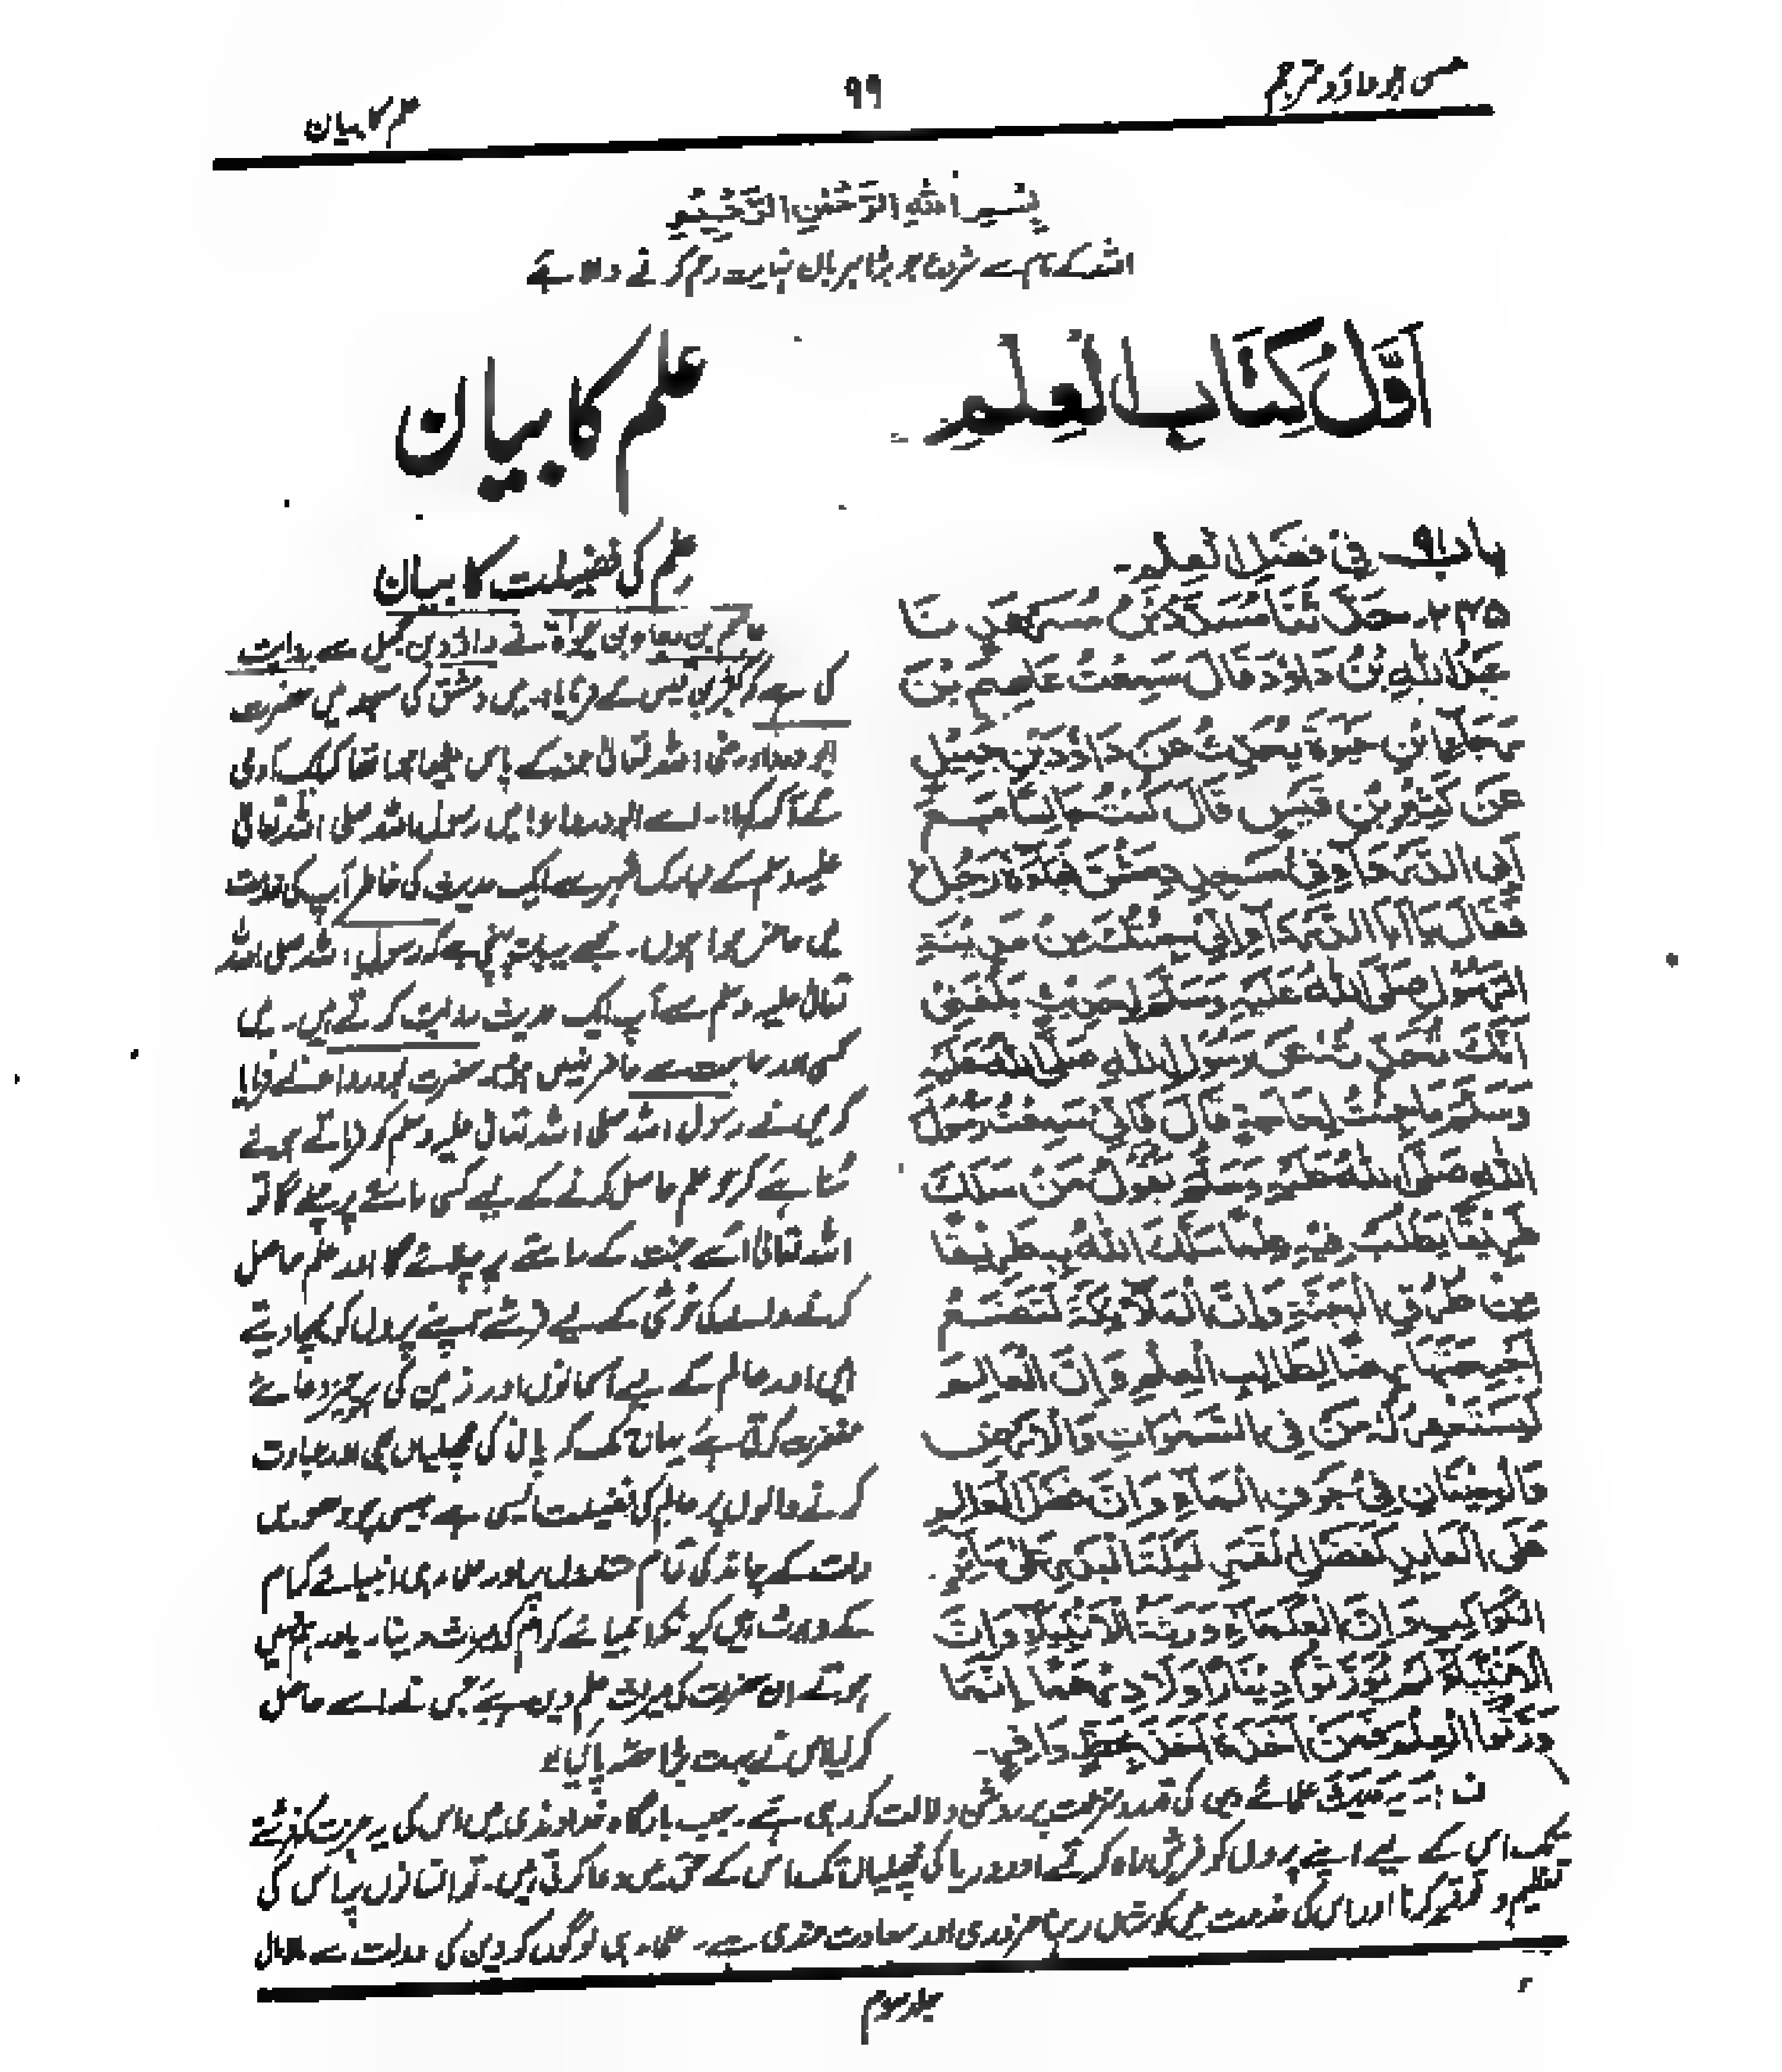 سنن ابوداؤد مترجم
۹۹
علم کا بیان
بِسْمِ اللهِ الرَّحْمٰنِ الرَّحِيْمِ
اللہ کے نام سے شروع جو بڑا مہربان نہایت رحم کرنے والا ہے
اَوَّلُ كِتَابِ الْعِلْمِ
علم کا بیان
باب ۹ فِيْ فَضْلِ الْعِلْمِ۔
۲۳۵۔ حَدَّثَنَا مُسَدَّدُ بْنُ مُسَرْهَدٍ نَا
عَبْدُ اللهِ بْنُ دَاؤدَ قَالَ سَمِعْتُ عَاصِمَ بْنَ
رَجَاءِ بْنِ حَيْوَةَ يُحَدِّثُ عَنْ دَاؤدَ بْنِ جَمِيْلٍ
عَنْ كَثِيْرِ بْنِ قَيْسٍ قَالَ كُنْتُ جَالِسًا مَعَ
اَبِي الدَّرْدَاءِ فِيْ مَسْجِدِ دِمَشْقَ فَجَاءَهٗ رَجُلٌ
فَقَالَ يَا اَبَا الدَّرْدَاءِ اِنِّيْ جِئْتُكَ مِنْ مَدِيْنَةِ
الرَّسُوْلِ صَلَّى اللهُ عَلَيْهِ وَسَلَّمَ لِحَدِيْثٍ بَلَغَنِيْ
اَنَّكَ تُحَدِّثُهٗ عَنْ رَسُوْلِ اللهِ صَلَّى اللهُ عَلَيْهِ
وَسَلَّمَ مَا جِئْتُ لِحَاجَةٍ قَالَ فَاِنِّيْ سَمِعْتُ رَسُوْلَ
اللهِ صَلَّى اللهُ عَلَيْهِ وَسَلَّمَ يَقُوْلُ مَنْ سَلَكَ
طَرِيْقًا يَطْلُبُ فِيْهِ عِلْمًا سَلَكَ اللهُ بِهٖ طَرِيْقًا
مِنْ طُرُقِ الْجَنَّةِ وَاِنَّ الْمَلَائِكَةَ لَتَضَعُ
اَجْنِحَتَهَا رِضًا لِطَالِبِ الْعِلْمِ وَاِنَّ الْعَالِمَ
لَيَسْتَغْفِرُ لَهٗ مَنْ فِي السَّمٰوَاتِ وَالْاَرْضِ
وَالْحِيْتَانُ فِيْ جَوْفِ الْمَاءِ وَاِنَّ فَضْلَ الْعَالِمِ
عَلَى الْعَابِدِ كَفَضْلِ الْقَمَرِ لَيْلَةَ الْبَدْرِ عَلٰى سَائِرِ
الْكَوَاكِبِ وَاِنَّ الْعُلَمَاءَ وَرَثَةُ الْاَنْبِيَاءِ وَاِنَّ
الْاَنْبِيَاءَ لَمْ يُوَرِّثُوْا دِيْنَارًا وَلَا دِرْهَمًا اِنَّمَا
وَرَّثُوا الْعِلْمَ فَمَنْ اَخَذَهٗ اَخَذَ بِحَظٍّ وَافِرٍ۔
علم کی فضیلت کا بیان
عاصم بن رجاء بن حیوٰۃ نے داؤد بن جمیل سے روایت
کی ہے کہ کثیر بن قیس نے فرمایا۔ میں دمشق کی مسجد میں حضرت
ابو درداء رضی اللہ تعالیٰ عنہ کے پاس بیٹھا ہوا تھا کہ ایک آدمی
نے آ کر کہا:۔ اے ابو درداء! میں رسول اللہ صلی اللہ تعالیٰ
علیہ وسلم کے مبارک شہر سے ایک حدیث کی خاطر آپ کی خدمت
میں حاضر ہوا ہوں۔ مجھے یہ بات پہنچی ہے کہ رسول اللہ صلی اللہ
تعالیٰ علیہ وسلم سے آپ ایک حدیث روایت کرتے ہیں۔ میں
کسی اور حاجت سے حاضر نہیں ہوا۔ حضرت ابو درداء نے فرمایا
کہ میں نے رسول اللہ صلی اللہ تعالیٰ علیہ وسلم کو فرماتے ہوئے
سنا ہے کہ جو علم حاصل کرنے کے لیے کسی راستے پر چلے گا تو
اللہ تعالیٰ اسے جنت کے راستے پر چلائے گا اور علم حاصل
کرنے والے کی خوشی کے لیے فرشتے اپنے پروں کو بچھا دیتے
ہیں اور عالم کے لیے آسمانوں اور زمین کی ہر چیز دعائے
مغفرت کرتی ہے یہاں تک کہ پانی کی مچھلیاں بھی اور عبادت
کرنے والوں پر عالم کی فضیلت ایسی ہے جیسی چودھویں
رات کے چاند کی تمام ستاروں پر اور علماء ہی انبیائے کرام
کے وارث ہیں کیونکہ انبیائے کرام کی میراث دینار یا درہم نہیں
ہوتے ان حضرات کی میراث علم دین ہے جس نے اسے حاصل
کر لیا اس نے بہت بڑا حصہ پا لیا۔
ف:۔ یہ حدیث علمائے دین کی قدر و منزلت پر روشن دلالت کر رہی ہے۔ جب بارگاہ خداوندی میں اس کی یہ عزت کہ فرشتے
تک اس کے لیے اپنے پروں کو فرش راہ کرتے اور دریا کی مچھلیاں تک اس کے حق میں دعا کرتی ہیں۔ تو انسانوں پر اس کی
تعظیم و توقیر کرنا اور اس کی خدمت میں کوشاں رہنا ضروری اور سعادت مندی ہے۔ علماء ہی لوگوں کو دین کی دولت سے مالامال
جلد سوم